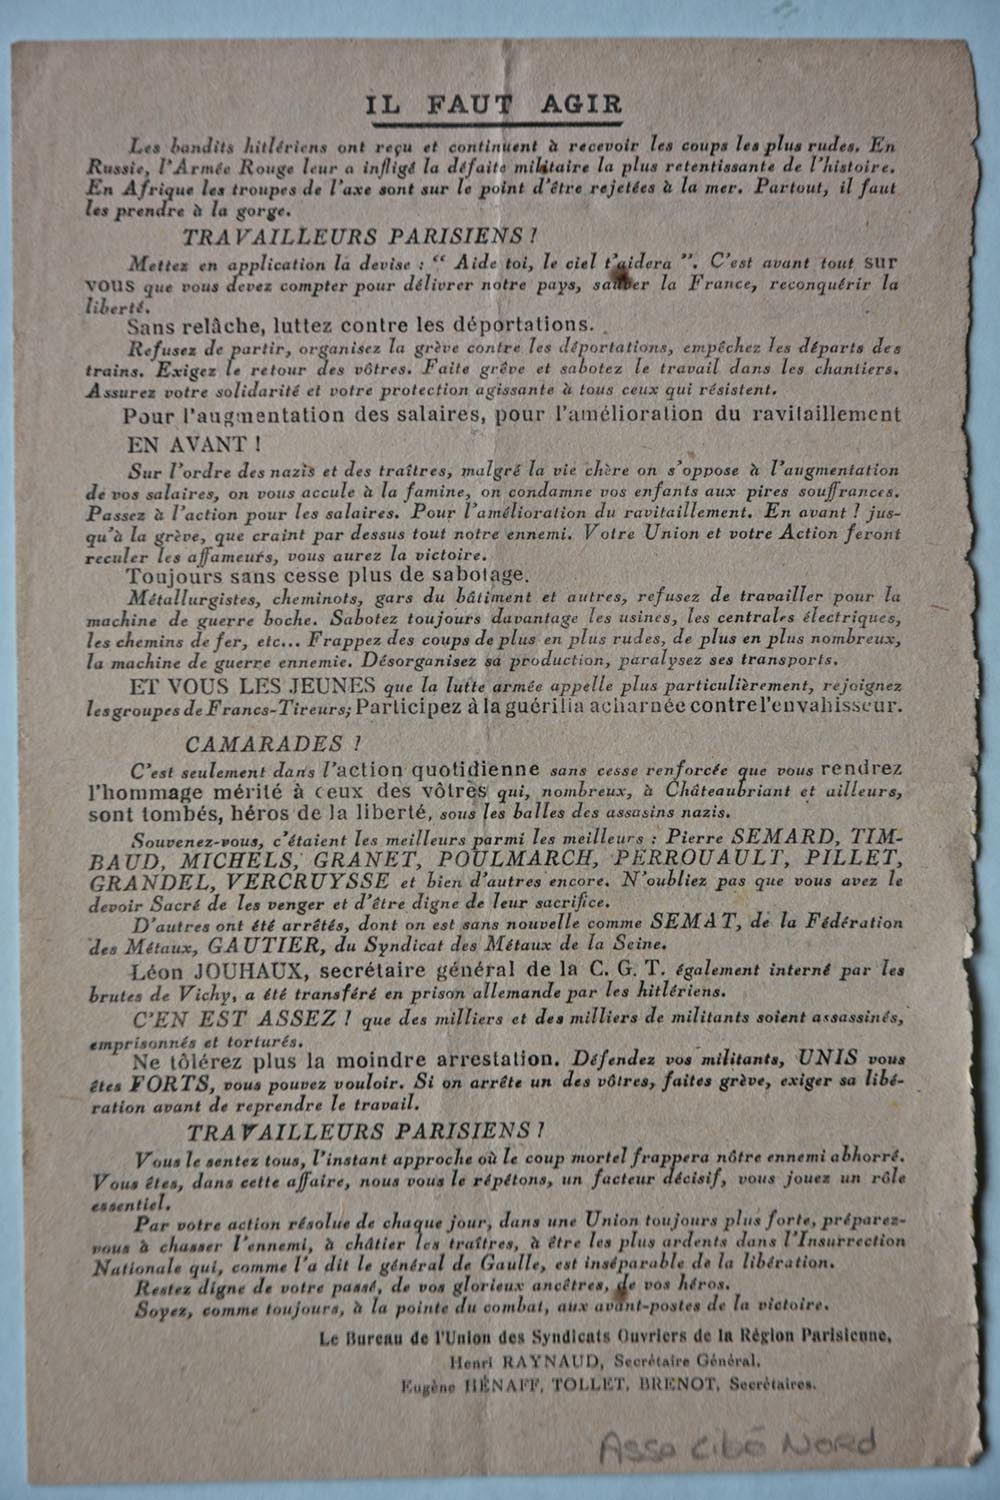 IL FAUT AGIR
Les bandits hitlériens ont reçu et continuent à recevoir les coups les plus rudes. En
Russie, l'Armée Rouge leur a infligé la défaite militaire la plus retentissante de l'histoire.
En Afrique les troupes de l'axe sont sur le point d'être rejetées à la mer. Partout, il faut
les prendre à la gorge.
TRAVAILLEURS PARISIENS !
Mettez en application la devise : “ Aide toi, le ciel t'aidera ”. C'est avant tout sur
vous que vous devez compter pour délivrer notre pays, sauver la France, reconquérir la
liberté.
Sans relâche, luttez contre les déportations.
Refusez de partir, organisez la grève contre les déportations, empêchez les départs des
trains. Exigez le retour des vôtres. Faite grêve et sabotez le travail dans les chantiers.
Assurez votre solidarité et votre protection agissante à tous ceux qui résistent.
Pour l'augmentation des salaires, pour l'amélioration du ravitaillement
EN AVANT !
Sur l'ordre des nazis et des traîtres, malgré la vie chère on s'oppose à l'augmentation
de vos salaires, on vous accule à la famine, on condamne vos enfants aux pires souffrances.
Passez à l'action pour les salaires. Pour l'amélioration du ravitaillement. En avant ! jus-
qu'à la grève, que craint par dessus tout notre ennemi. Votre Union et votre Action feront
reculer les affameurs, vous aurez la victoire.
Toujours sans cesse plus de sabotage.
Métallurgistes, cheminots, gars du bâtiment et autres, refusez de travailler pour la
machine de guerre boche. Sabotez toujours davantage les usines, les centrales électriques,
les chemins de fer, etc... Frappez des coups de plus en plus rudes, de plus en plus nombreux,
la machine de guerre ennemie. Désorganisez sa production, paralysez ses transports.
ET VOUS LES JEUNES que la lutte armée appelle plus particulièrement, rejoignez
les groupes de Francs-Tireurs; Participez à la guérilla acharnée contre l'envahisseur.
CAMARADES !
C'est seulement dans l'action quotidienne sans cesse renforcée que vous rendrez
l'hommage mérité à ceux des vôtres qui, nombreux, à Châteaubriant et ailleurs,
sont tombés, héros de la liberté, sous les balles des assasins nazis.
Souvenez-vous, c'étaient les meilleurs parmi les meilleurs : Pierre SEMARD, TIM-
BAUD, MICHELS, GRANET, POULMARCH, PERROUAULT, PILLET,
GRANDEL, VERCRUYSSE et bien d'autres encore. N'oubliez pas que vous avez le
devoir Sacré de les venger et d'être digne de leur sacrifice.
D'autres ont été arrêtés, dont on est sans nouvelle comme SEMAT, de la Fédération
des Métaux, GAUTIER, du Syndicat des Métaux de la Seine.
Léon JOUHAUX, secrétaire général de la C. G. T. également interné par les
brutes de Vichy, a été transféré en prison allemande par les hitlériens.
C'EN EST ASSEZ ! que des milliers et des milliers de militants soient assassinés,
emprisonnés et torturés.
Ne tôlérez plus la moindre arrestation. Défendez vos militants, UNIS vous
êtes FORTS, vous pouvez vouloir. Si on arrête un des vôtres, faites grève, exiger sa libé-
ration avant de reprendre le travail.
TRAVAILLEURS PARISIENS !
Vous le sentez tous, l'instant approche où le coup mortel frappera nôtre ennemi abhorré.
Vous êtes, dans cette affaire, nous vous le répétons, un facteur décisif, vous jouez un rôle
essentiel.
Par votre action résolue de chaque jour, dans une Union toujours plus forte, préparez-
vous à chasser l'ennemi, à châtier les traîtres, à être les plus ardents dans l'Insurrection
Nationale qui, comme l'a dit le général de Gaulle, est inséparable de la libération.
Restez digne de votre passé, de vos glorieux ancêtres, de vos héros.
Soyez, comme toujours, à la pointe du combat, aux avant-postes de la victoire.
Le Bureau de l'Union des Syndicats Ouvriers de la Région Parisienne,
Henri RAYNAUD, Secrétaire Général,
Eugène HÉNAFF, TOLLET, BRENOT, Secrétaires.
Asso Libé Nord